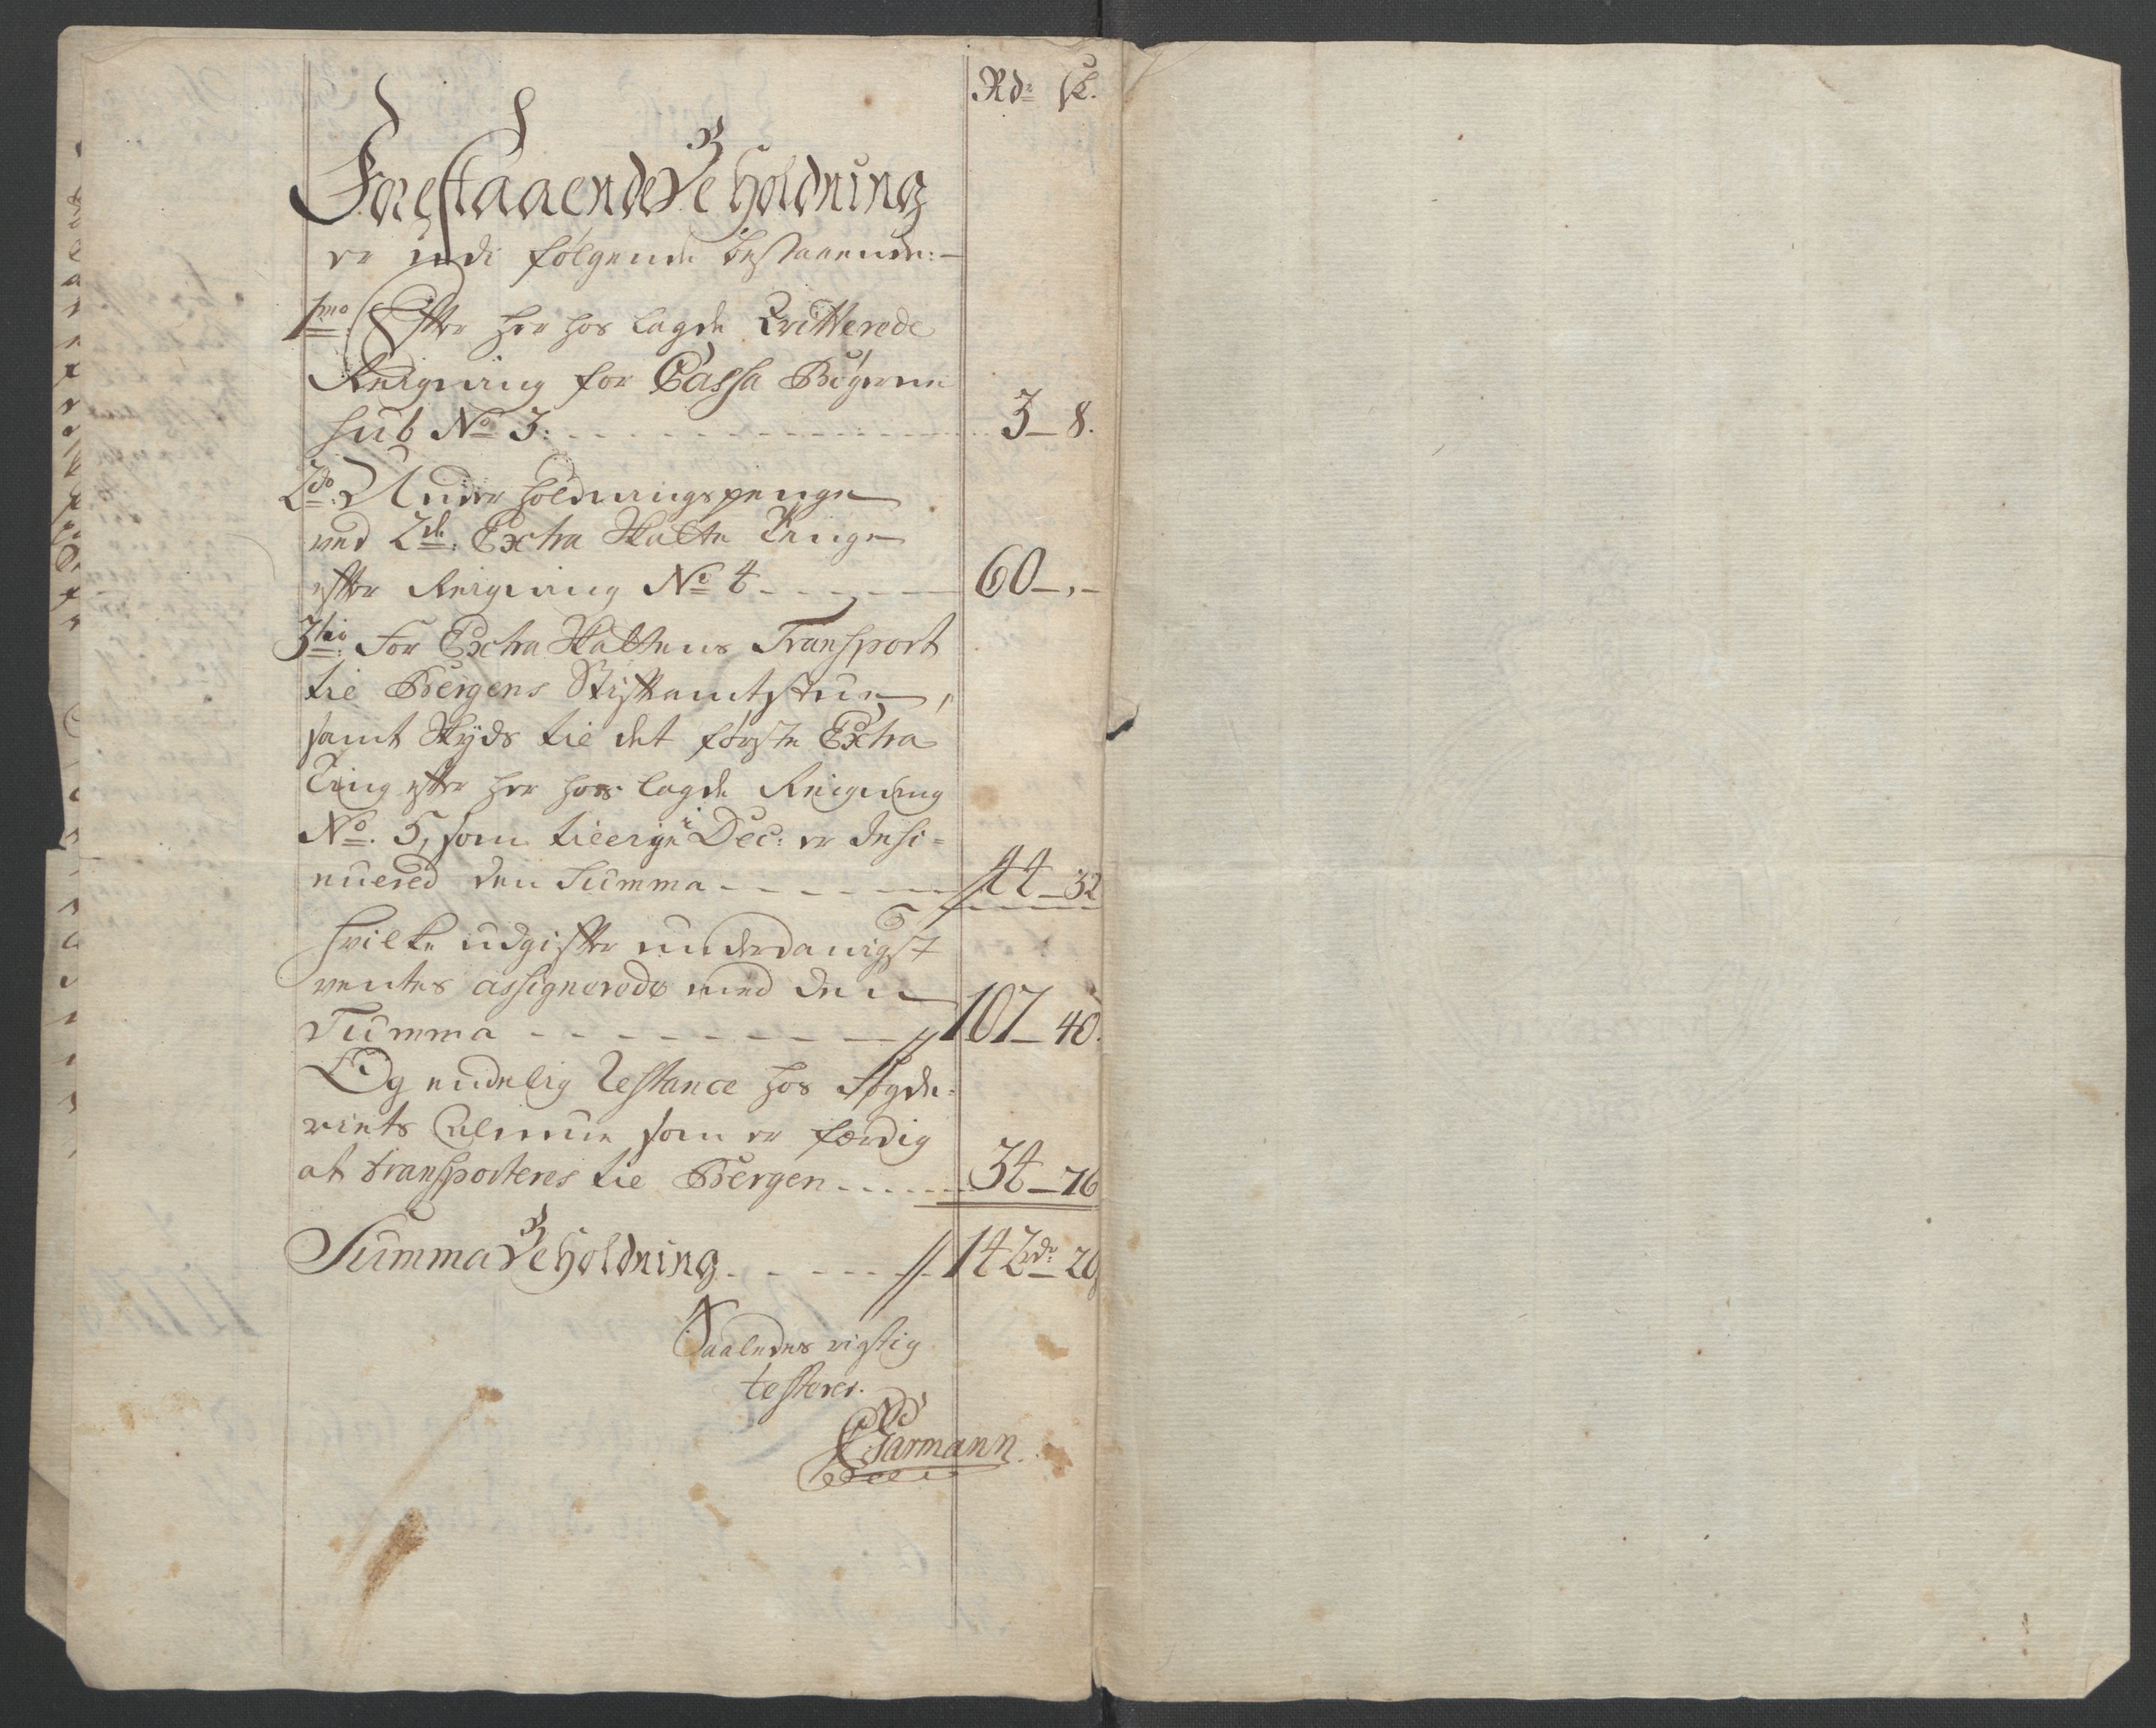 Rdr ſk.
Forestaaende Beholdning
er udi følgende bestaaende:
1mo Efter her hos lagde Qvitterede
Reigning for Cassa Bøgerne
sub No 3: 3 - 8.
2do Underholdningspenge
ved 2de Extra Skatte Tinge
efter Reigning No 4 60 - , -
3tio For Extra Skattens Transport
til Bergens Stiftamtstue,
samt Skyds til det første Extra
Ting efter her hos lagde Reigning
No. 5, som til i Dec: er Insi-
nuered den Summa 44 - 32
Hvilke udgifter underdanigst
ventes assignerede med den
Summa 107 - 40.
Og endelig Restance hos Fogde-
riets Almue som er færdig
at transporteres til Bergen 34 - 76
Summa Beholdning 142 rdr - 20
Saaledes rigtig
testerer.
Garmann